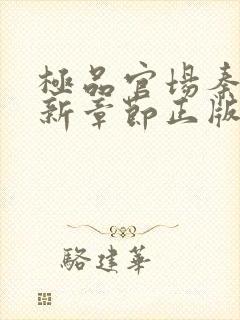 極品官場秦
新章節正版
駱建華